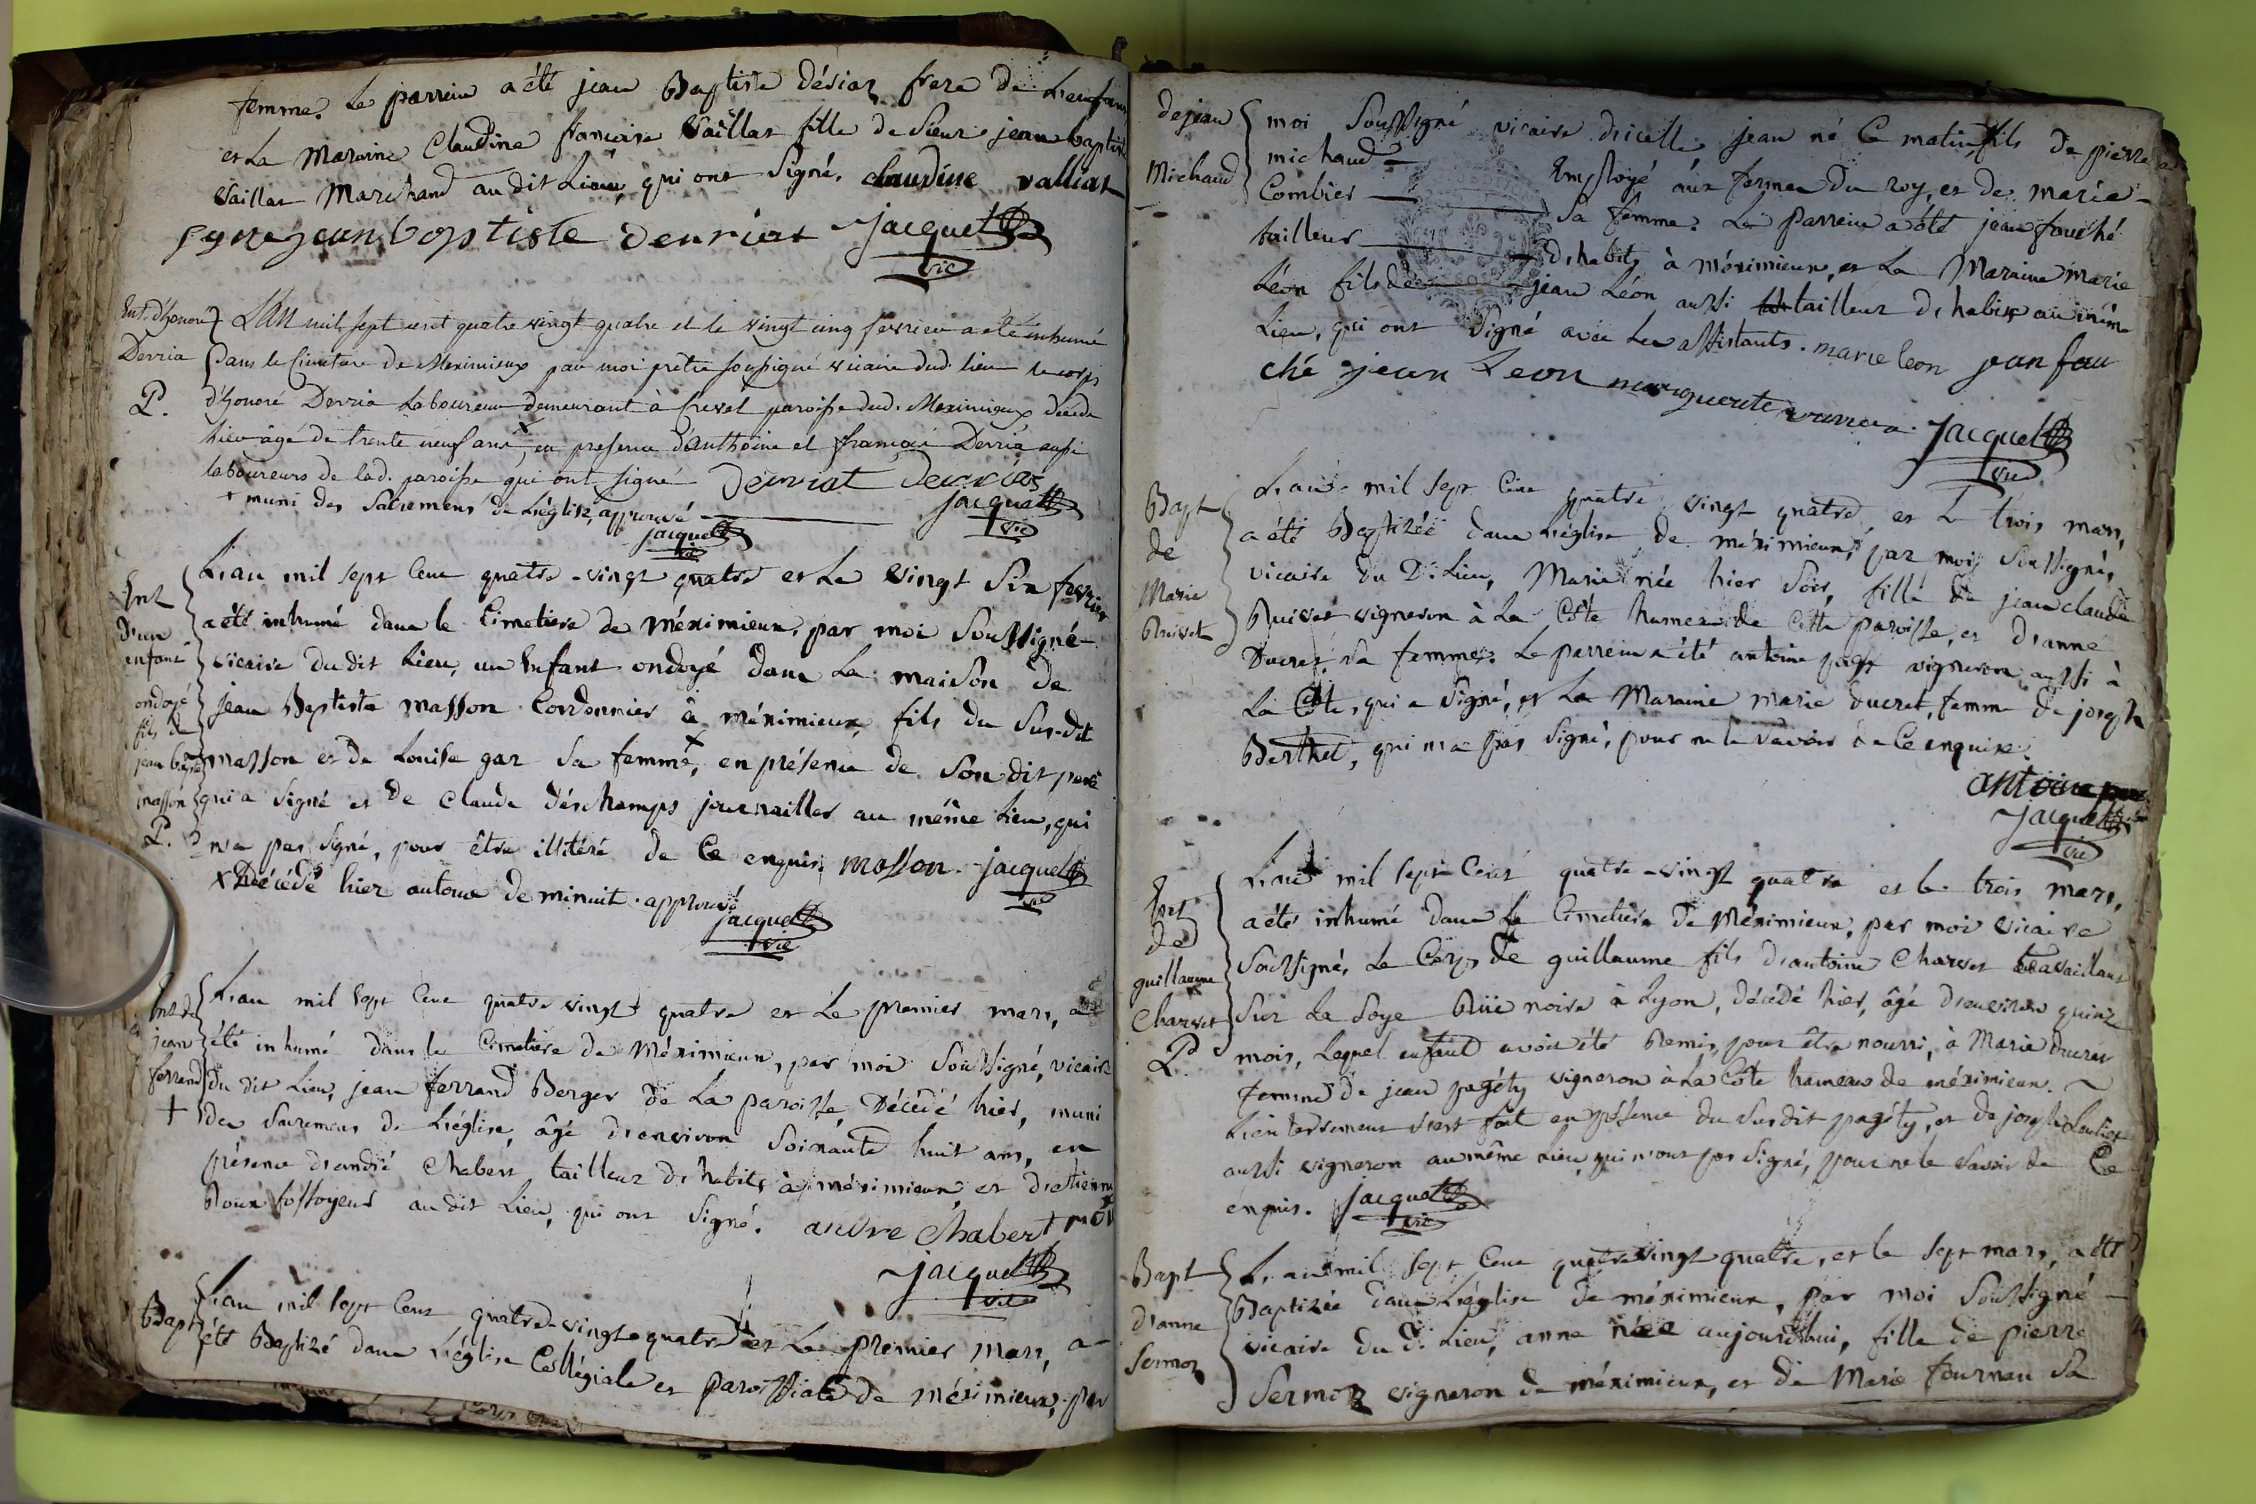 femme. Le parrein a été jean Baptiste Désiaz frere de L'enfant
et La Maraine Claudine francoise Vaillat fille de Sieur jean baptiste
Vaillat Marchand au dit Lieu, qui ont Signé. claudine valliat
jean baptiste deuriat Jacquet
vic
Ent. d'honoré
Derria
P.
L'an mil sept cent quatre vingt quatre et le vingt cinq fevrier a été inhumé
dans le Cimetiere de Meximieux par moi prêtre soussigné vicaire dud. lieu le corps
d'honoré Derria Laboureur demeurant à Crevel paroisse dud. Meximieux décédé
hier âgé de trente neuf ans x, en presence d'anthoine et francois Derria aussi
laboureurs de lad. paroisse qui ont signé Deuriat Deurias
+ muni des Sacremens de L'église, approuvé Jacquet
vic
jacquet
vic
Ent
d'un
enfant
ondoyé
fils de
jean bapt
masson
P.
L'an mil sept Cent quatre-vingt quatre et Le vingt Six fevrier
a été inhumé dans le Cimetiere de méximieux, par moi Soussigné
vicaire du dit Lieu, un Enfant ondoyé dans La maison de
jean Baptiste masson Cordonnier à méximieux, fils du Sus-dit
masson et de Louise gar Sa femme x, en présence de Son dit pere
qui a Signé et de Claude deschamps journaillier au même Lieu, qui
n'a pas Signé, pour être illitéré de Ce enquis. masson. jacquet
vic
x Décédé hier autour de minuit. approuvé
jacquet
vic
Ent de
jean
ferrand
+
L'an mil Sept Cent quatre vingt quatre et Le premier mars, a
été inhumé dans le Cimetiere de Méximieux, par moi Soussigné, vicaire
du dit Lieu, jean ferrand Berger de La paroisse, Décédé hier, muni
des Sacremens de L'église, âgé d'environ Soixante huit ans, en
présence d'andré Chabert tailleur d'habits à méximieux et d'etienne
Roux fossoyeur au dit Lieu, qui ont Signé. andre Chabert
jacquet
vic
Bapt
L'an mil sept Cent quatre-vingt-quatre et Le premier mars, a
été Baptizé dans L'église Collégiale et paroissiale de méximieux, par
de jean
Michaud
moi Soussigné vicaire d'icelle jean né Ce matin, fils de pierre
michaud Employé aux fermes du roy, et de marie
Combier Sa femme. Le parrein a été jean fauché
tailleur d'habits à méximieux, et La Maraine Marie
Léon fils de jean Léon aussi tailleur d'habits au même
Lieu, qui ont Signé avec Les assistants. marie leon jean fau
ché jean Leon marguerite Jacquet
vic
Bapt
de
Marie
Ruivet
L'an mil sept Cent quatre vingt quatre, et Le trois mars,
a été Baptizée dans L'église de méximieux, par moi Soussigné,
vicaire du D. Lieu, Marie née hier Soir, fille de jean claude
Ruivet vigneron à La Côte hameau de Cette paroisse, et d'anne
Ducret Sa femme. Le parrein a été antoine page vigneron aussi à
La Côte, qui a Signé, et La Maraine marie ducret, femme de joseph
Berthet, qui n'a pas Signé, pour ne le Savoir de Ce enquise.
antoine
Jacquet
vic
Ent
de
guillaume
Charvet
P.
L'an mil sept Cent quatre-vingt quatre et le trois mars,
a été inhumé dans Le Cimetiere de Méximieux, par moi vicaire
Soussigné, Le Corps de guillaume fils d'antoine Charvet travaillant
Sur La Soye Rüe noire à Lyon, décédé hier, âgé d'environ quinze
mois, Lequel enfant avoit été Remis, pour être nourri, à Marie ducret
femme de jean pagéty vigneron à La Côte hameau de méximieux.
L'enterrement s'est fait en présence du Susdit pagéty, et de joseph
aussi vigneron au même Lieu, qui n'ont pas Signé, pour ne le Savoir de Ce
enquis. jacquet
vic
Bapt
d'anne
Sermoz
L'an mil Sept Cent quatre vingt quatre, et le Sept mars, a été
Baptizée dans L'église de méximieux, par moi Soussigné
vicaire du D. Lieu, anne née aujourd'hui, fille de pierre
Sermoz vigneron de méximieux, et de Marie fournau Sa